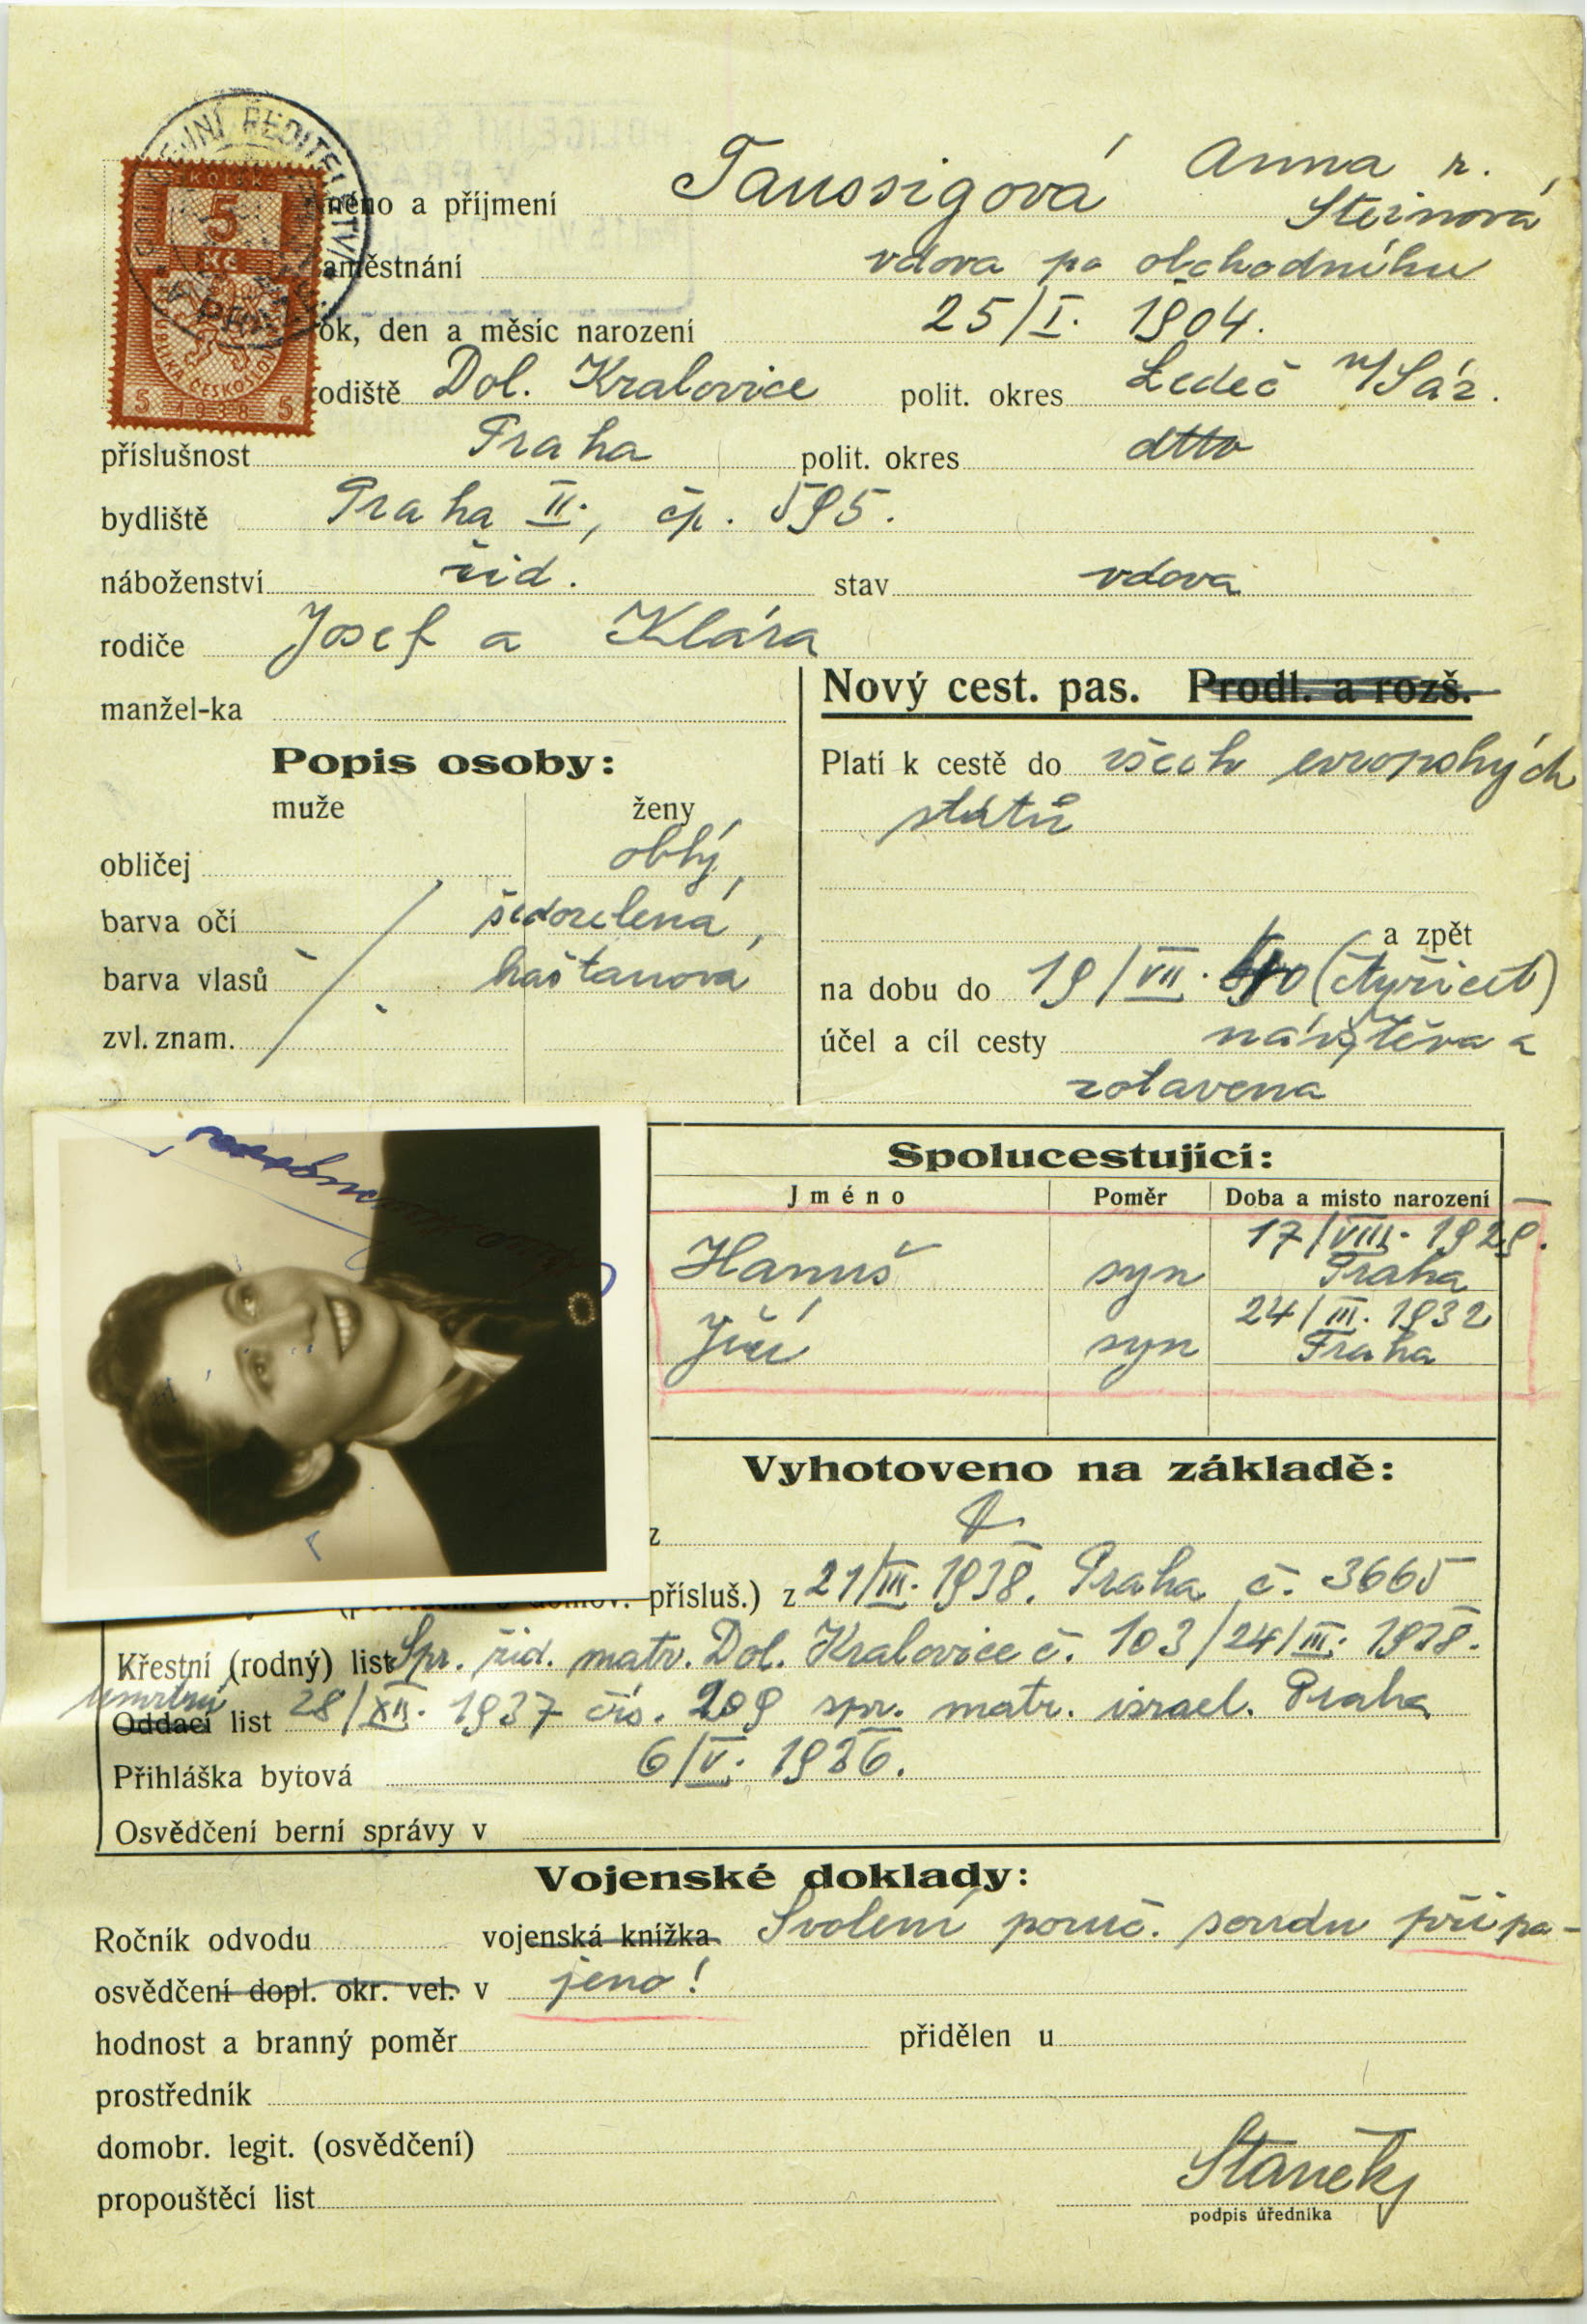 POLICEJNÍ ŘEDITELSTVÍ
KOLEK
5
Kč
REPUBLIKA ČESKOSLOVENSKÁ
5 1938 5
méno a příjmení Taussigová Anna r.
Steinová
aměstnání vdova po obchodníku
ok, den a měsíc narození 25/I. 1904.
odiště Dol. Kralovice polit. okres Ledeč n/Sáz.
příslušnost Praha polit. okres dtto
bydliště Praha II., čp. 595.
náboženství žid. stav vdova
rodiče Josef a Klára
manžel-ka
Nový cest. pas. Prodl. a rozš.
Popis osoby:
muže ženy
obličej oblý,
barva očí šedozelená,
barva vlasů kaštanová
zvl. znam.
Platí k cestě do všech evropských
států
a zpět
na dobu do 19/VII. 40 (čtyřicet)
účel a cíl cesty návštěva a
zotavena
Spolucestující:
Jméno Poměr Doba a místo narození
Hanuš syn 17/VIII. 1929. Praha
Jiří syn 24/III. 1932 Praha
Vyhotoveno na základě:
z
přísluš.) z 21/III. 1938. Praha č. 3665
Křestní (rodný) list Spr. žid. matr. Dol. Kralovice č. 103/24/III. 1938.
úmrtní
Oddací list 28/XII. 1937 čís. 209 spr. matr. israel. Praha
Přihláška bytová 6/V. 1936.
Osvědčení berní správy v
Vojenské doklady:
Ročník odvodu vojenská knížka Svolení poruč. soudu připo-
osvědčení dopl. okr. vel. v jeno!
hodnost a branný poměr přidělen u
prostředník
domobr. legit. (osvědčení)
propouštěcí list
Staněk
podpis úředníka